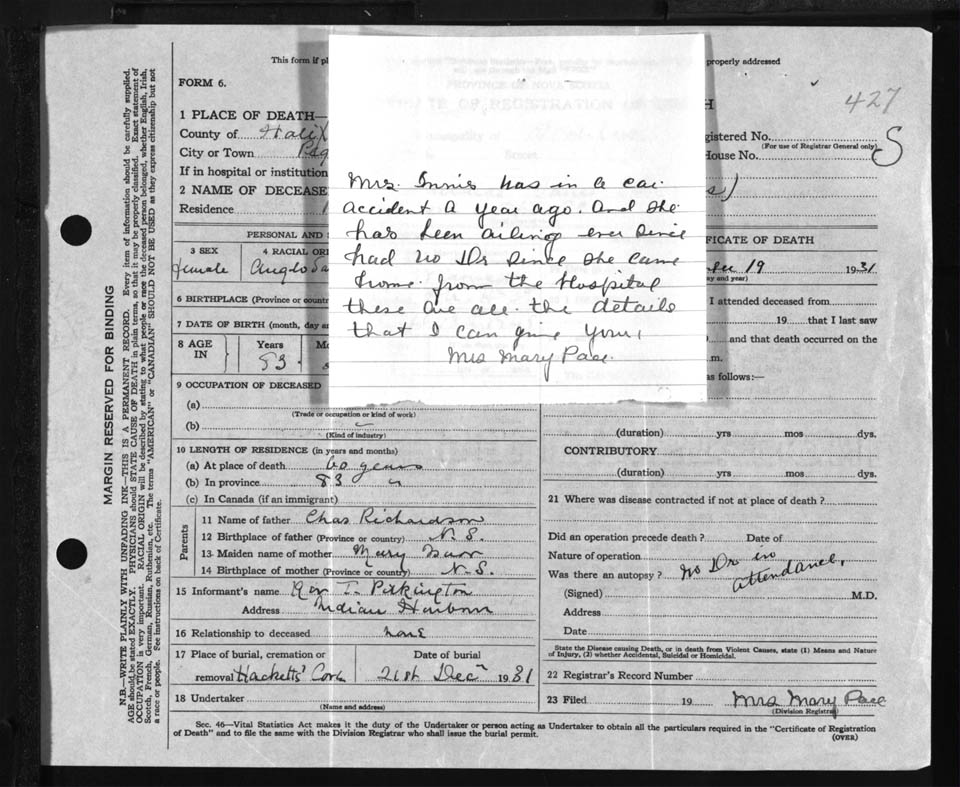 This form if
properly addressed
FORM 6.
PROVINCE OF NOVA SCOTIA
REGISTRATION
427
1 PLACE OF DEATH—
County of
Registered No.
(For use of Registrar General only)
S
City or Town
House No.
If in hospital or institution
2 NAME OF DECEASE
Residence
Mrs. Innis has in a car
accident a year ago. And she
has been ailing ever since
had no Dr since she came
home from the Hospital
these are all the details
that I can give you,
Mrs Mary Pace.
PERSONAL AND
CERTIFICATE OF DEATH
3 SEX
4 RACIAL ORI
Female
19 1931
6 BIRTHPLACE (Province or count
I attended deceased from
7 DATE OF BIRTH (month, day a
19 that I last saw
8 AGE IN
Years
and that death occurred on the
83
m.
as follows:—
9 OCCUPATION OF DECEASED
(a)
(Trade or occupation or kind of work)
(b)
(Kind of industry)
(duration) yrs mos dys.
10 LENGTH OF RESIDENCE (in years and months)
CONTRIBUTORY
(a) At place of death 60 years
(duration) yrs mos dys.
(b) In province 83 "
(c) In Canada (if an immigrant)
21 Where was disease contracted if not at place of death?
Parents
11 Name of father Chas Richardson
12 Birthplace of father (Province or country) N.S.
Did an operation precede death? Date of
13 Maiden name of mother Mary
Nature of operation
14 Birthplace of mother (Province or country) N.S.
Was there an autopsy? no Dr in attendance,
15 Informant's name Rev T.
(Signed) M.D.
Address Indian Harbour
Address
16 Relationship to deceased none
Date
State the Disease causing Death, or in death from Violent Causes, state (1) Means and Nature
of Injury, (2) whether Accidental, Suicidal or Homicidal.
17 Place of burial, cremation or removal Hacketts' Cove
Date of burial 21st Dec 1931
22 Registrar's Record Number
18 Undertaker
(Name and address)
23 Filed 19 Mrs Mary Pace
(Division Registrar)
Sec. 46—Vital Statistics Act makes it the duty of the Undertaker or person acting as Undertaker to obtain all the particulars required in the "Certificate of Registration
of Death" and to file the same with the Division Registrar who shall issue the burial permit.
(OVER)
MARGIN RESERVED FOR BINDING
N.B.—WRITE PLAINLY WITH UNFADING INK—THIS IS A PERMANENT RECORD. Every item of information should be carefully supplied.
AGE should be stated EXACTLY. PHYSICIANS should STATE CAUSE OF DEATH in plain terms, so that it may be properly classified. Exact statement of
OCCUPATION is very important. RACIAL ORIGIN will be described by stating to what people or race the deceased person belonged, whether English, Irish,
Scotch, French, German, Russian, Ruthenian, etc. The terms "AMERICAN" or "CANADIAN" SHOULD NOT BE USED as they express citizenship but not
a race or people. See instructions on back of Certificate.